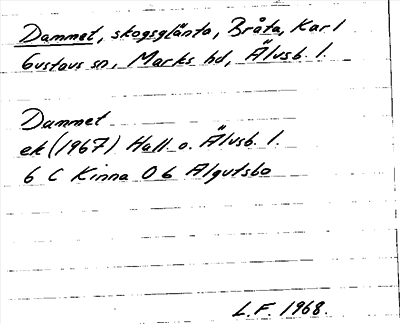 Dammet, skogsglänta, Bråta, Karl
Gustavs sn, Marks hd, Älvsb. l.
Dammet
ek (1967) Hall. o. Älvsb. l.
6 C Kinna 0 6 Älgutsbo
L.F. 1968.